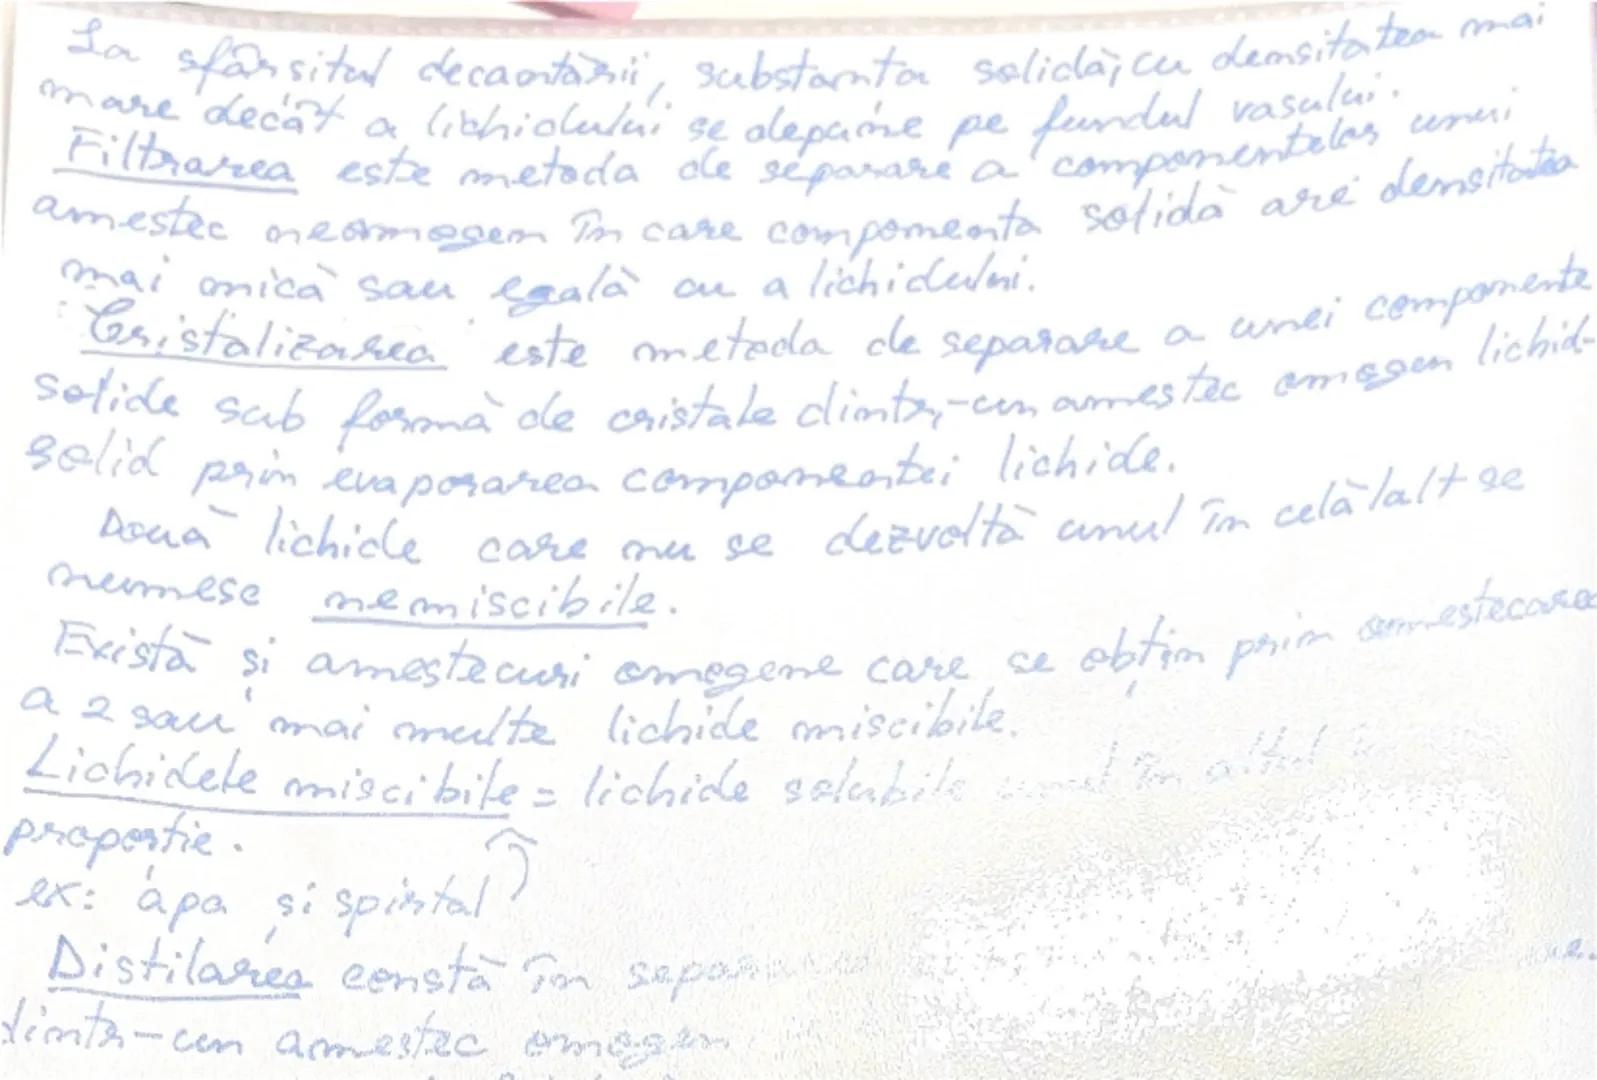 La sfârsitul decantării, substanta solidă, cu densitatea mai
mare decât a lichidului se depune pe fundul vasului.
Filtrarea este metoda de separare a componentelor unui
amestec neomogen în care componenta solidă are densitatea
mai mică sau egală cu a lichidului.
Cristalizarea este metoda de separare a unei componente
solide sub formă de cristale dintr-un amestec omogen lichid-
solid prin evaporarea componentei lichide.
Două lichide care nu se dezvoltă unul în celălalt se
numesc nemiscibile.
Există și amestecuri omogene care se obțin prin amestecarea
a 2 sau mai multe lichide miscibile.
Lichidele miscibile = lichide solubile unul în altul
proportie.
ex: apa și spirtul
Distilarea constă în separarea
dintr-un amestec omogen